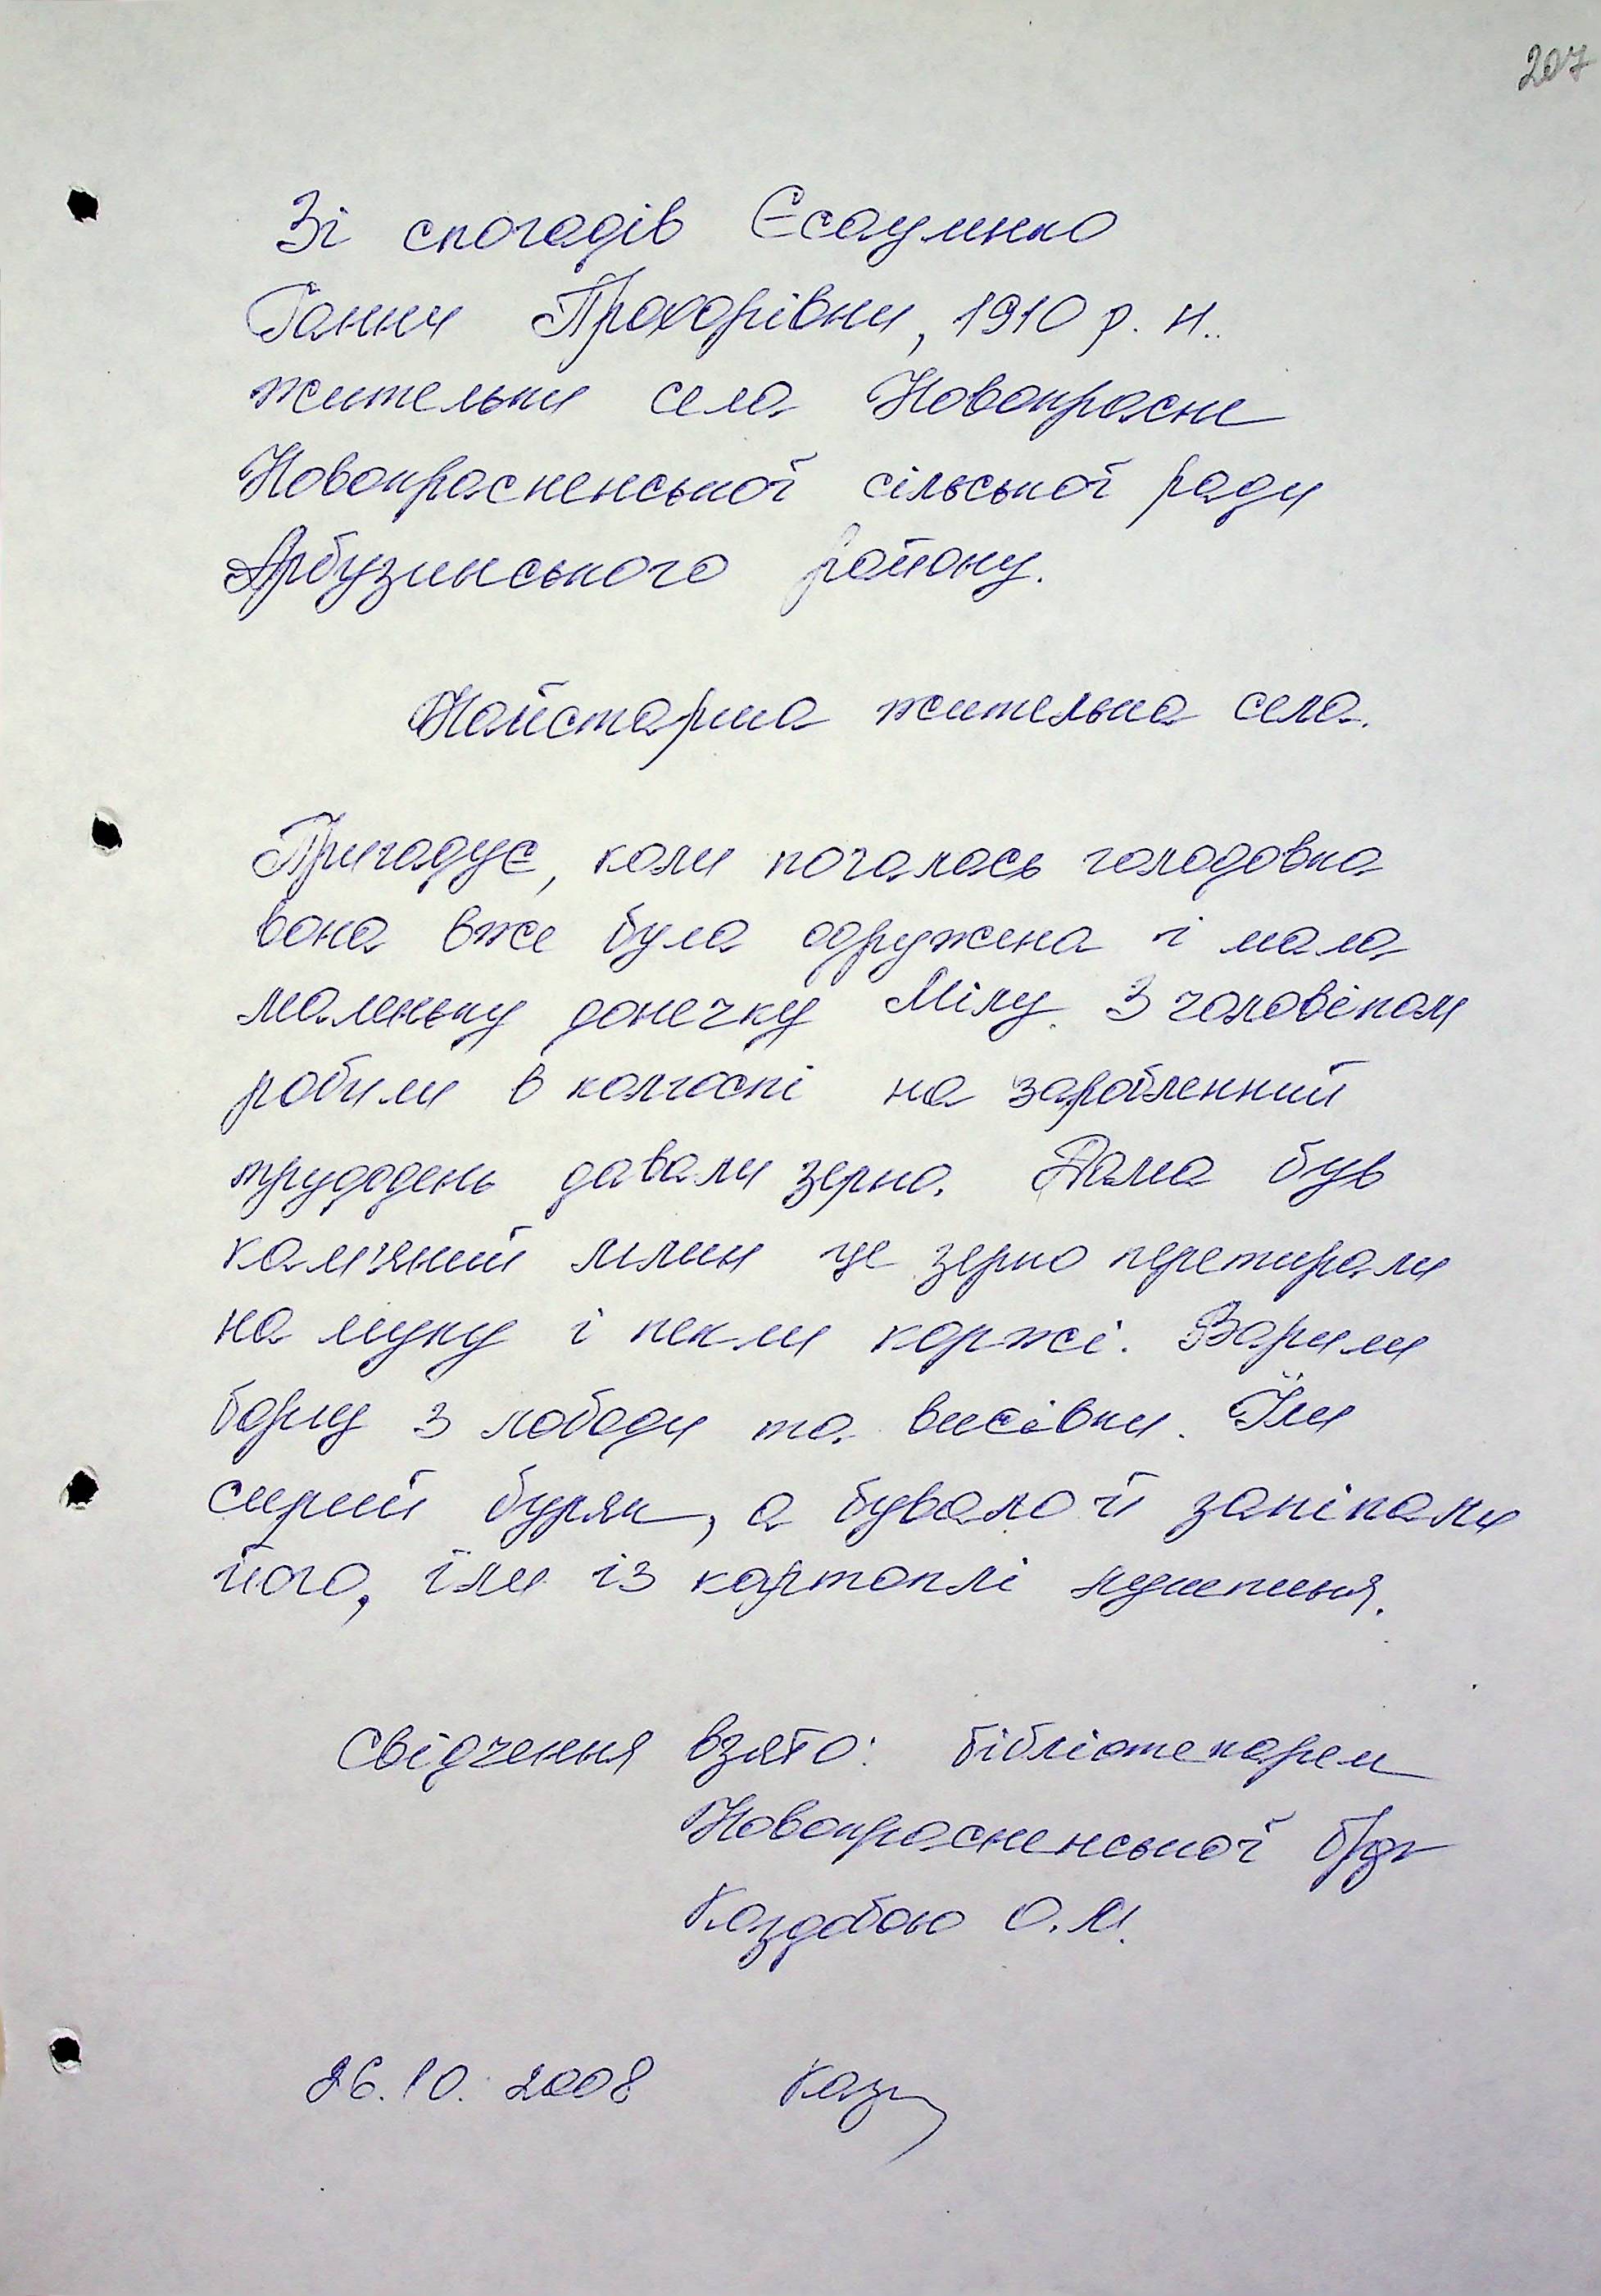 207
Зі спогадів Єсауленко
Ганни Прохорівни, 1910 р. н..
жительки села Новокрасне
Новокрасненської сільської ради
Арбузинського району.
Найстарша жителька села.
Пригадує, коли почалась голодовка
вона вже була одружена і мала
маленьку донечку Мілу. З чоловіком
робили в колгоспі на зароблений
трудодень давали зерно. Дома був
кам'яний млин це зерно перетирали
на муку і пекли коржі. Варили
борщ з лободи та висівки. Їли
сирий буряк, а бувало й запікали
його, їли із картоплі лушпиння.
Свідчення взято: бібліотекарем
Новокрасненської б/ф
Каздобою О. М.
26.10. 2008 Каз